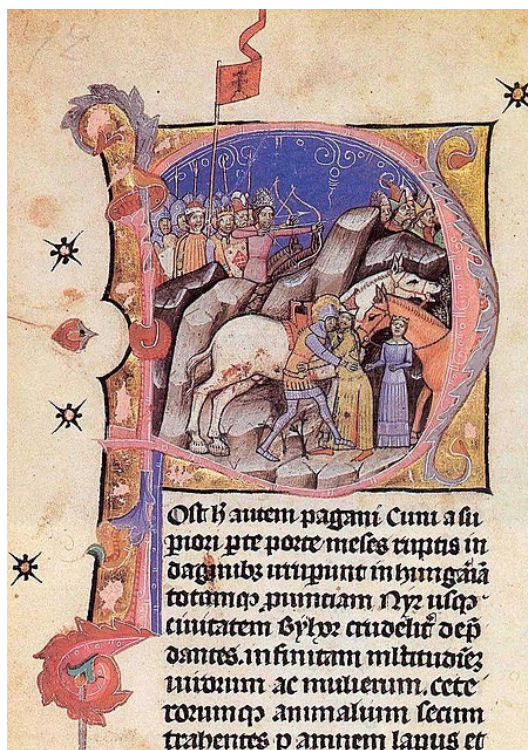 Post h̄ autem pagani Cuni a su
piori pte porte meses ruptis in
daginibꝫ irrupunt in hungaiā
totamqꝫ ꝓuinciam Nyr usqꝫ
ciuitatem Byhor crudelit᷑ dep̄
dantes. infinitam mltitudiēꝫ
uirorum ac mulierum. cete
rorumqꝫ animalium secum
trahentes p amnem lapus et